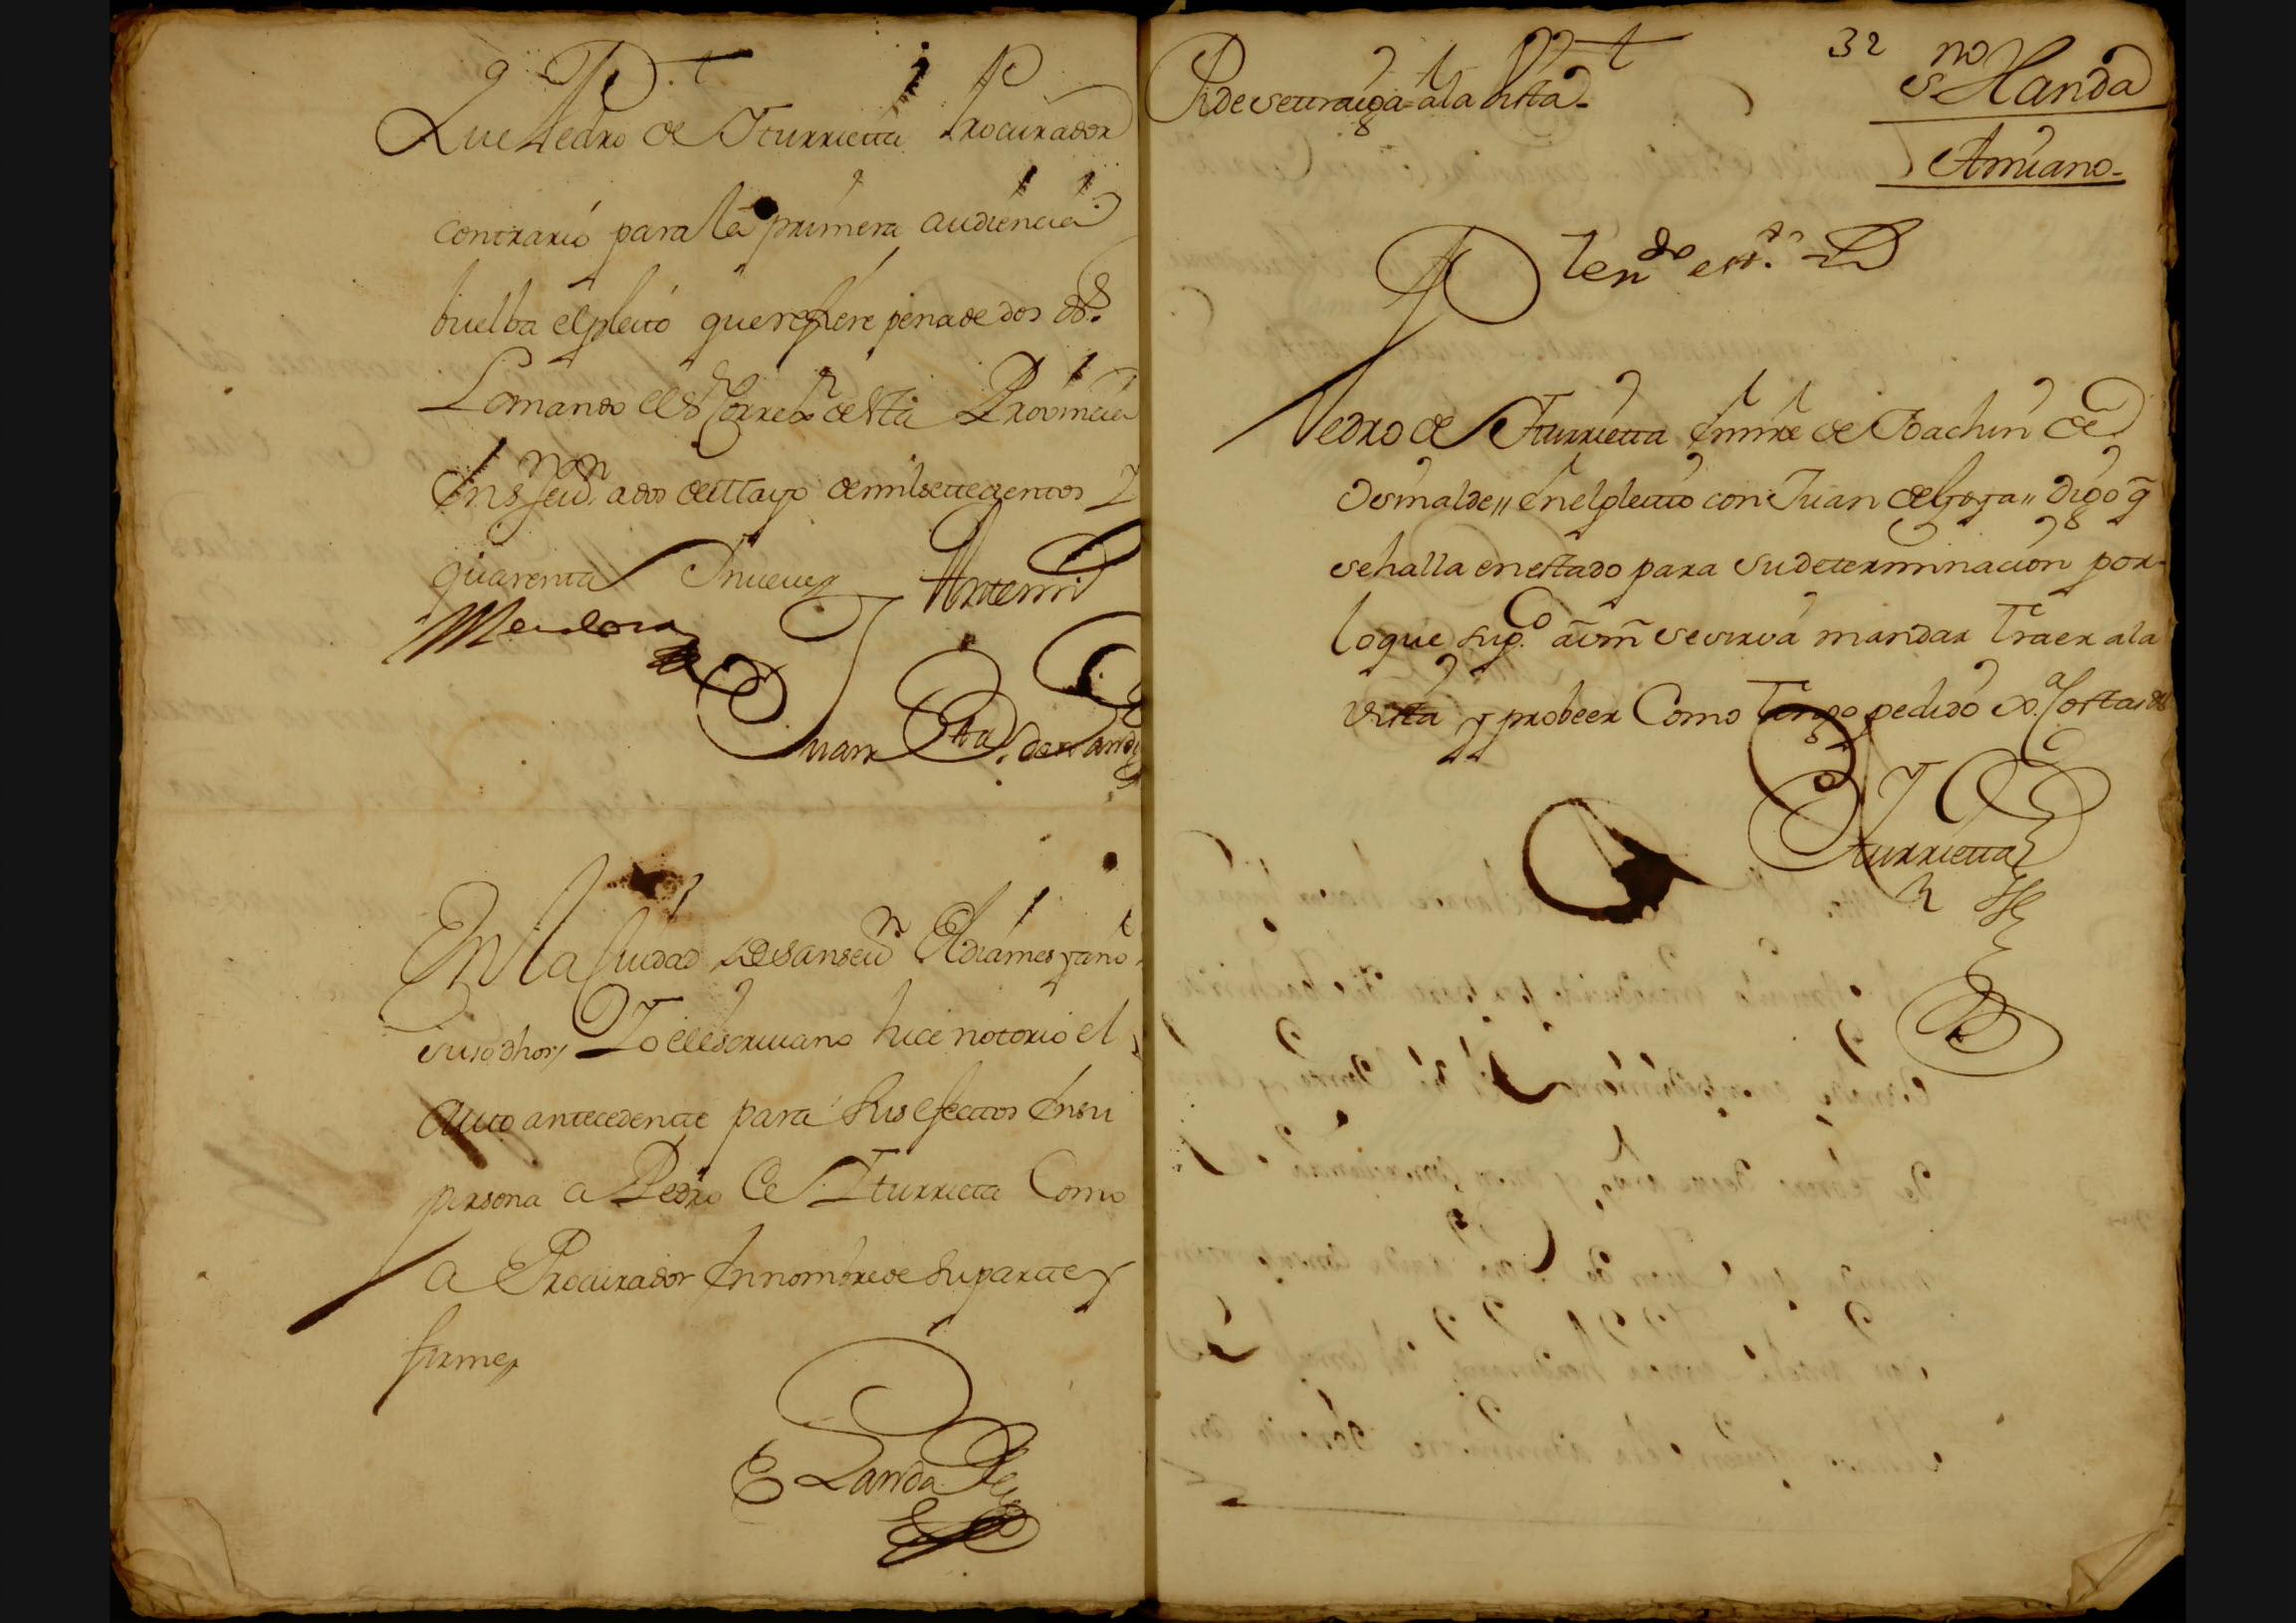 Que Pedro de Yturrietta Procurador
contrario para la primera audiencia
buelba el pleito que refiere pena de dos ds.
Lo mando el Sr. Corregor. de esta Provincia
En San Sevn. a dos de Mayo de mil settecientos y
quarenta y nueve
Mendoza Antemi
Juan Bta. de Landa
En la Ciudad de San Sevn. el dia mes y año
susodhos Yo el escrivano hice notorio el
auto antecedente para sus efectos En su
persona a Pedro de Yturrietta Como
a Procurador En nombre de su parte y
firme
Landa
32
Pide se traiga a la vista
sno. Landa
Amiano
Pedro de Yturrietta En nre de Joachin de
Osinalde en el pleitto con Juan de digo q̃
se halla en estado para su determinacion por
lo que supco. a vm̃ se sirva mandar traer a la
vista y probeer Como tengo pedido Costas
Yturrietta